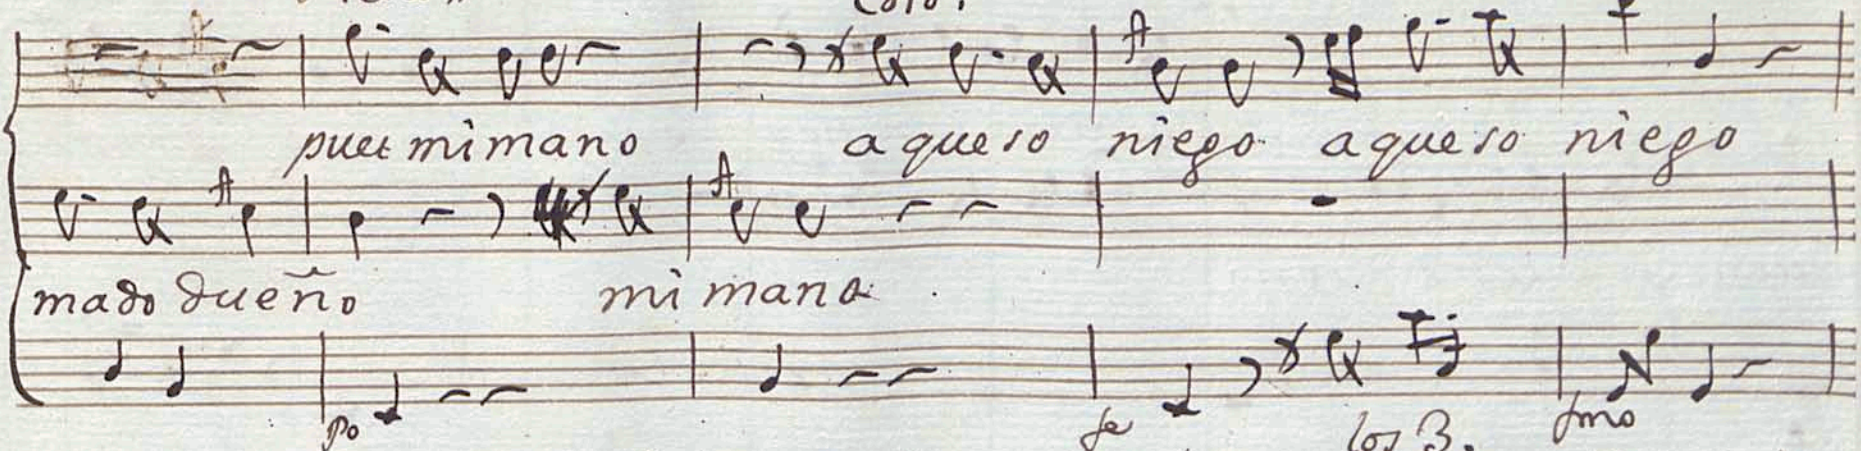 Coro.
pues mi mano a queso niego a queso niego
mado dueño mi mano
po fe los 3. fmo